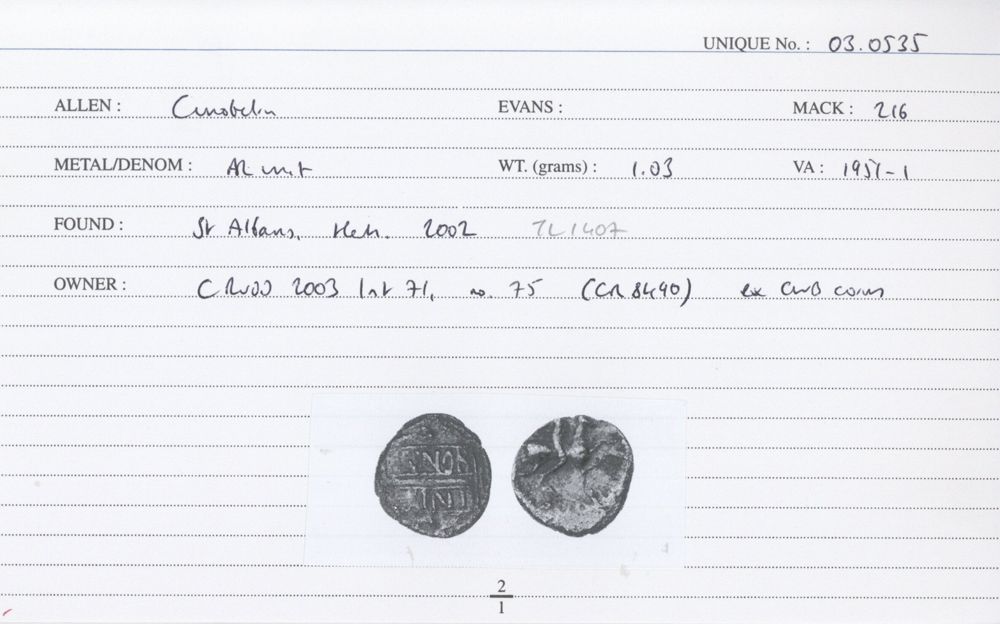 UNIQUE No. : 03.0535
ALLEN : Cunobelin EVANS : MACK : 216
METAL/DENOM : AR unit WT. (grams) : 1.03 VA : 1951-1
FOUND : St Albans, Herts. 2002 TL1407
OWNER : C Rudd 2003 list 71, no. 75 (CR 8490) ex coins
2
1